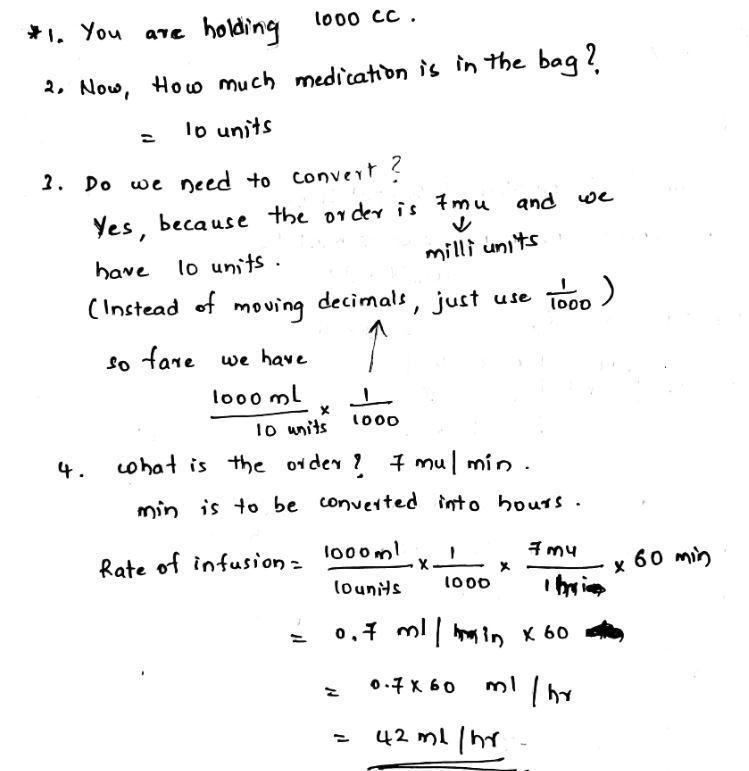 *1. You are holding 1000 cc.
2. Now, How much medication is in the bag?
= 10 units
3. Do we need to convert?
Yes, because the order is 7mu and we
milli units
have 10 units.
(Instead of moving decimals, just use 1/1000)
so fare we have
1000 mL / 10 units × 1/1000
4. What is the order? 7 mu/min.
min is to be converted into hours.
Rate of infusion = 1000ml / 10units × 1/1000 × 7mu / 1 × 60 min
= 0.7 ml / min × 60
= 0.7 × 60 ml / hr
= 42 ml / hr